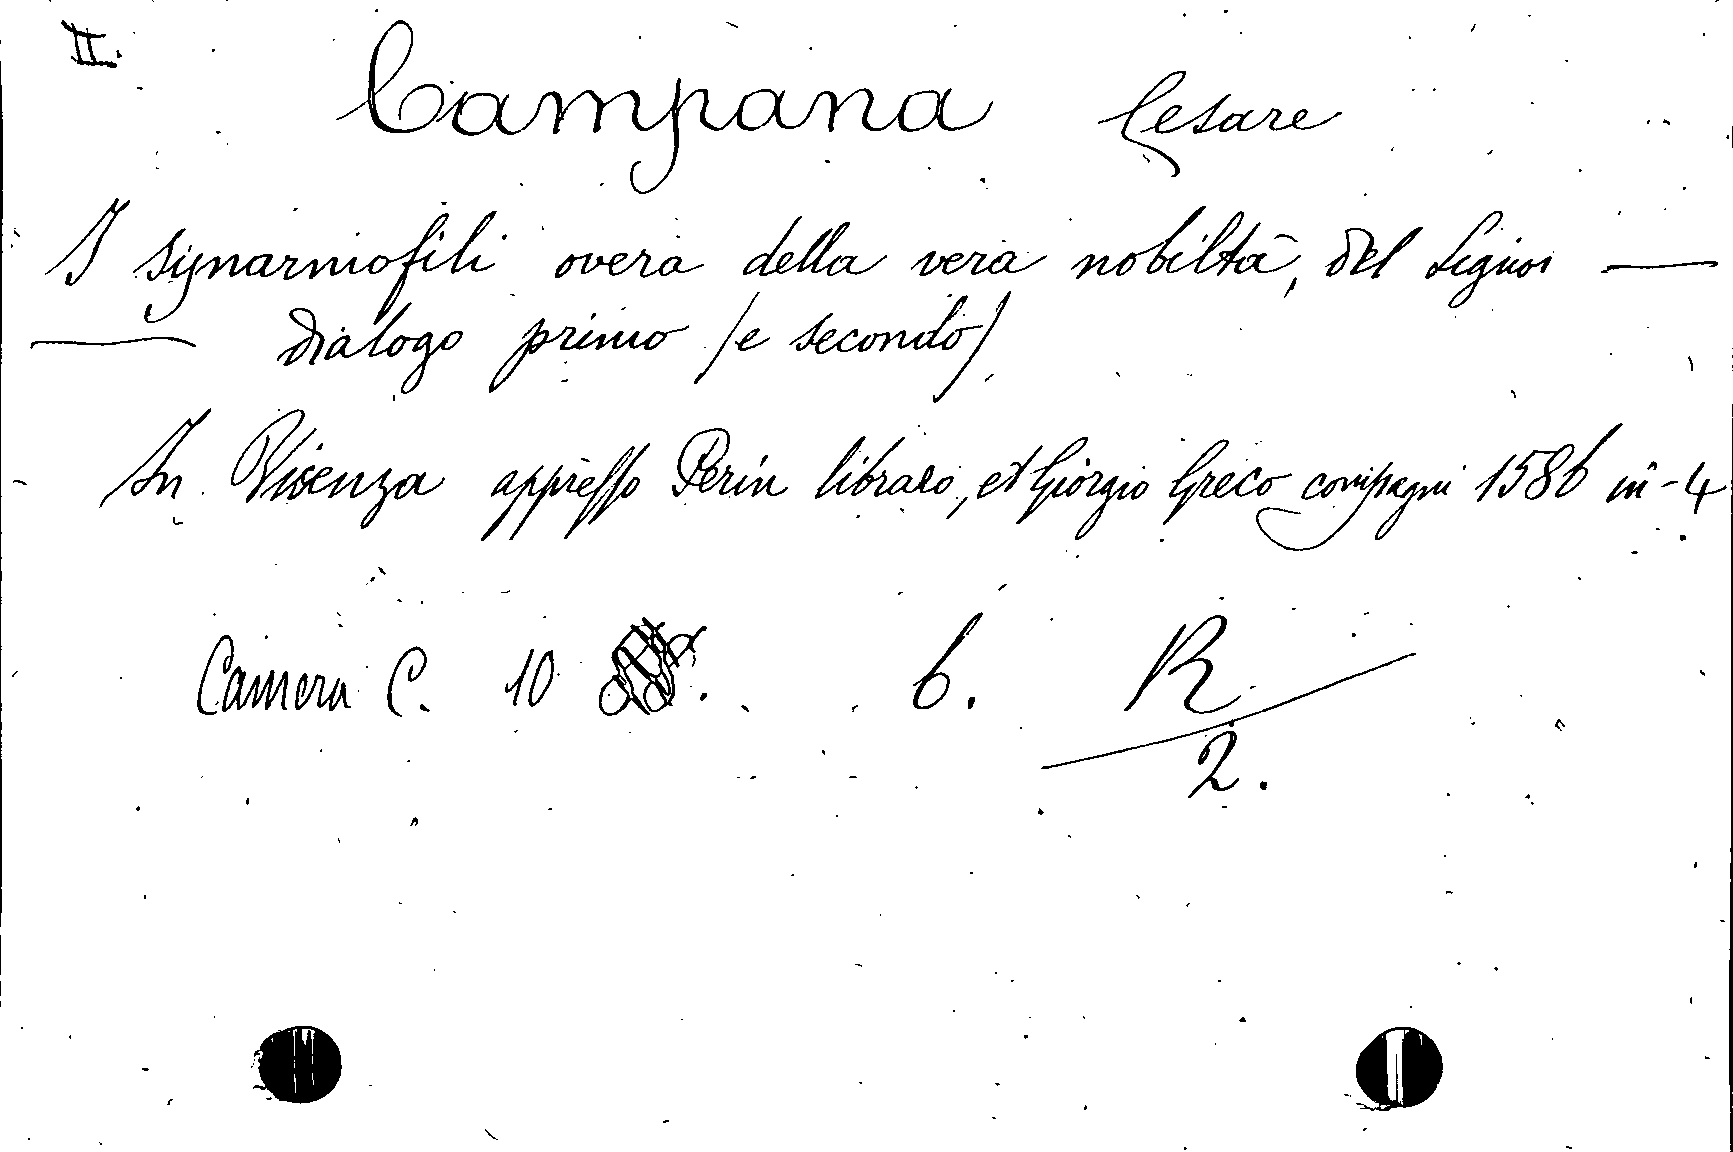 II.
Campana Cesare
I synarmofili overa della vera nobiltà, del Signor ——
—— dialogo primo (e secondo)
In Vicenza appresso Perin libraro, et Giorgio Greco compagni 1586 in-4
Camera C. 10 . 6. R
2.